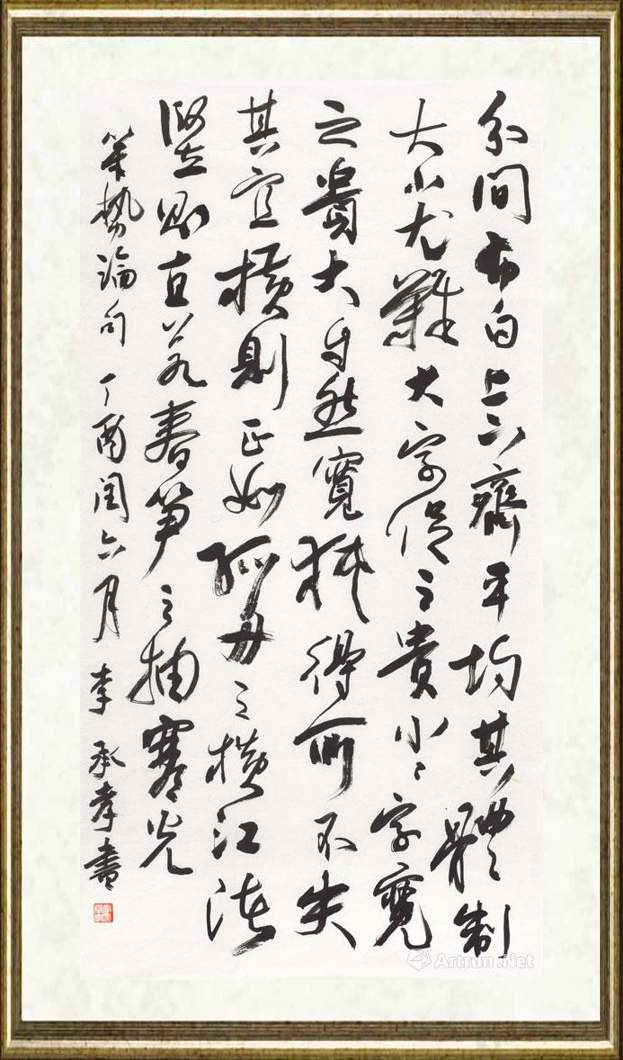 分間布白上下齊平均其體制
大小尤難大字促之貴小〻字寬
之貴大自然寬狹得所不失
其宜横則正如孤舟之横江渚
竪則直若春笋之抽寒谷
筆勢論句 丁酉閏六月 李承孝書
Artron.Net